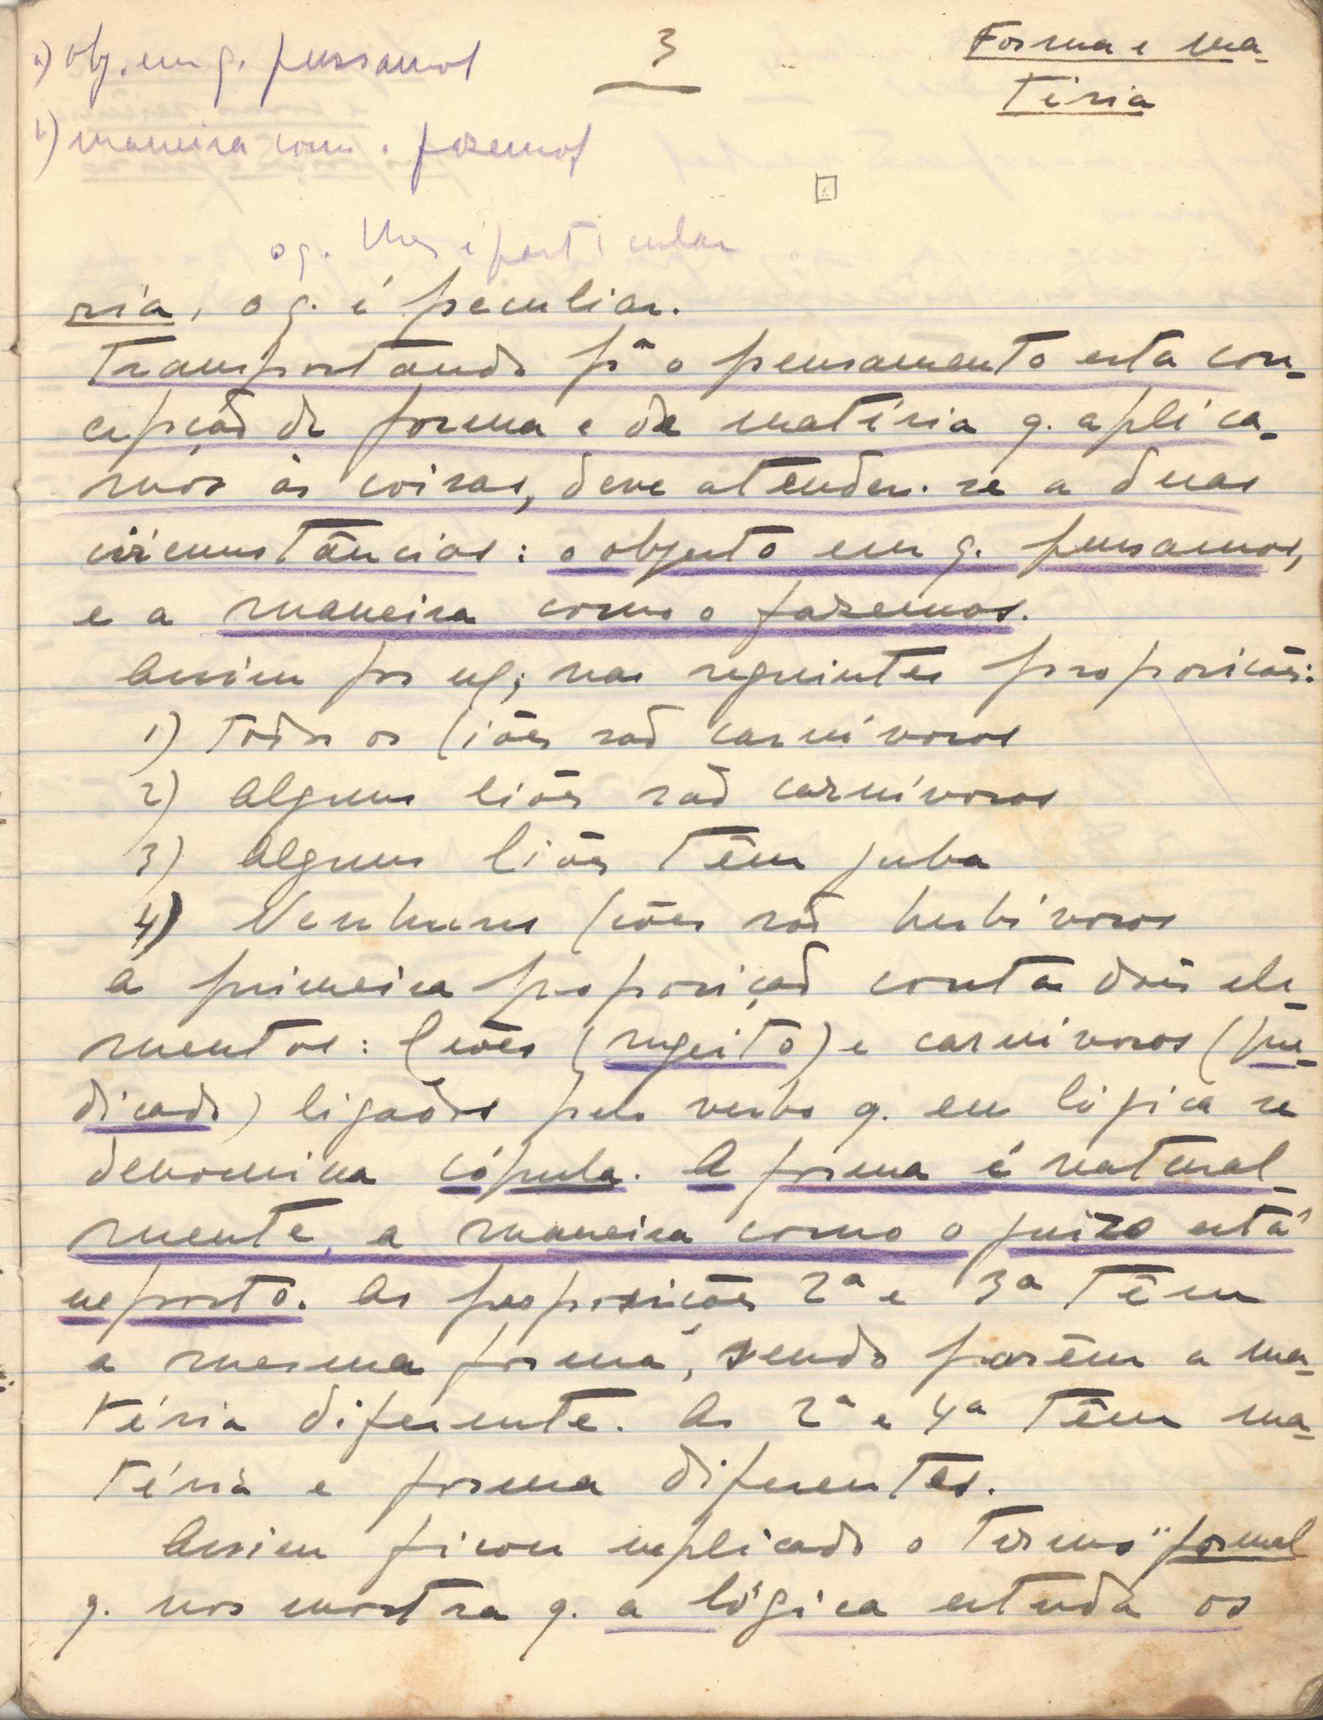 a) obj. em q. pensamos
3
Forma e ma-
téria
b) maneira como o fazemos
o q. lhes é particular
ria, o q. é peculiar.
Transportando pª o pensamento esta con-
cepção de forma e de matéria q. aplica-
mos às coisas, deve atender-se a duas
circunstâncias: o objecto em q. pensamos,
e a maneira como o fazemos.
Assim por ex; nas seguintes proposicões:
1) Todos os liões são carnívoros
2) Alguns liões são carnívoros
3) Alguns liões têm juba
4) Nenhuns liões são herbívoros
A primeira proposição conta dois ele-
mentos: leões (sugeito) e carnivoros (pre-
dicado) ligados pelo verbo q. em lógica se
denomina cópula. A forma é natural-
mente, a maneira como o juizo está
exposto. As proposicões 2ª e 3ª têm
a mesma forma, sendo porêm a ma-
téria diferente. As 2ª e 4ª têm ma-
téria e forma diferentes.
Assim ficou explicado o termo "formal
q. nos mostra q. a lógica estuda os